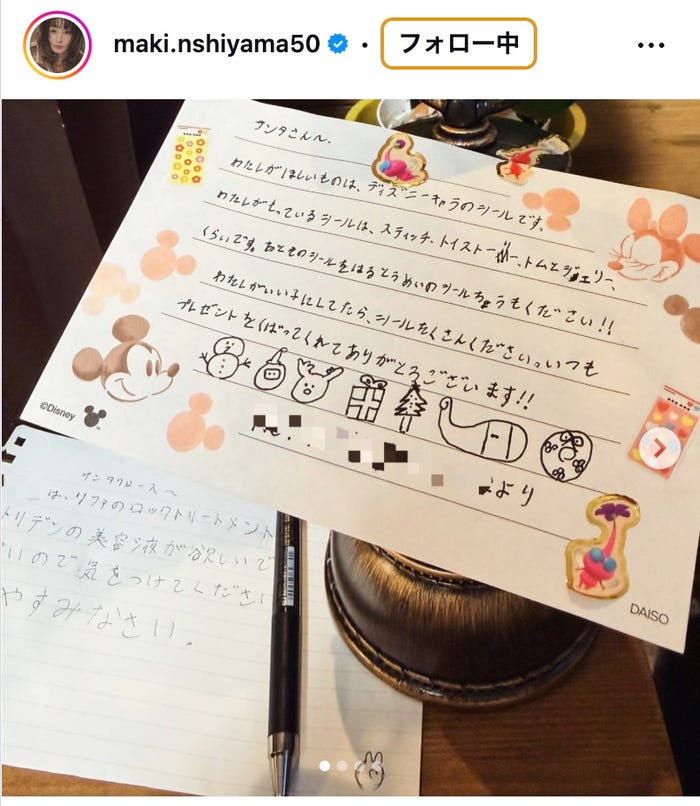 maki.nshiyama50 • フォロー中 •••
サンタさんへ、
わたしがほしいものは、ディズニーキャラのシールです。
わたしがもっているシールは、スティッチ、トイストーリー、トムとジェリー、
くらいです。あとそのシールをはるとうめいのシールちょうもください!!
わたしがいい子にしてたら、シールたくさんください。いつも
プレゼントをくばってくれてありがとうございます!!
より
©Disney
DAISO
サンタクロースへ
は、リファのロックトリートメント
トリデンの美容液が欲しいで
いので気をつけてください
やすみなさい.